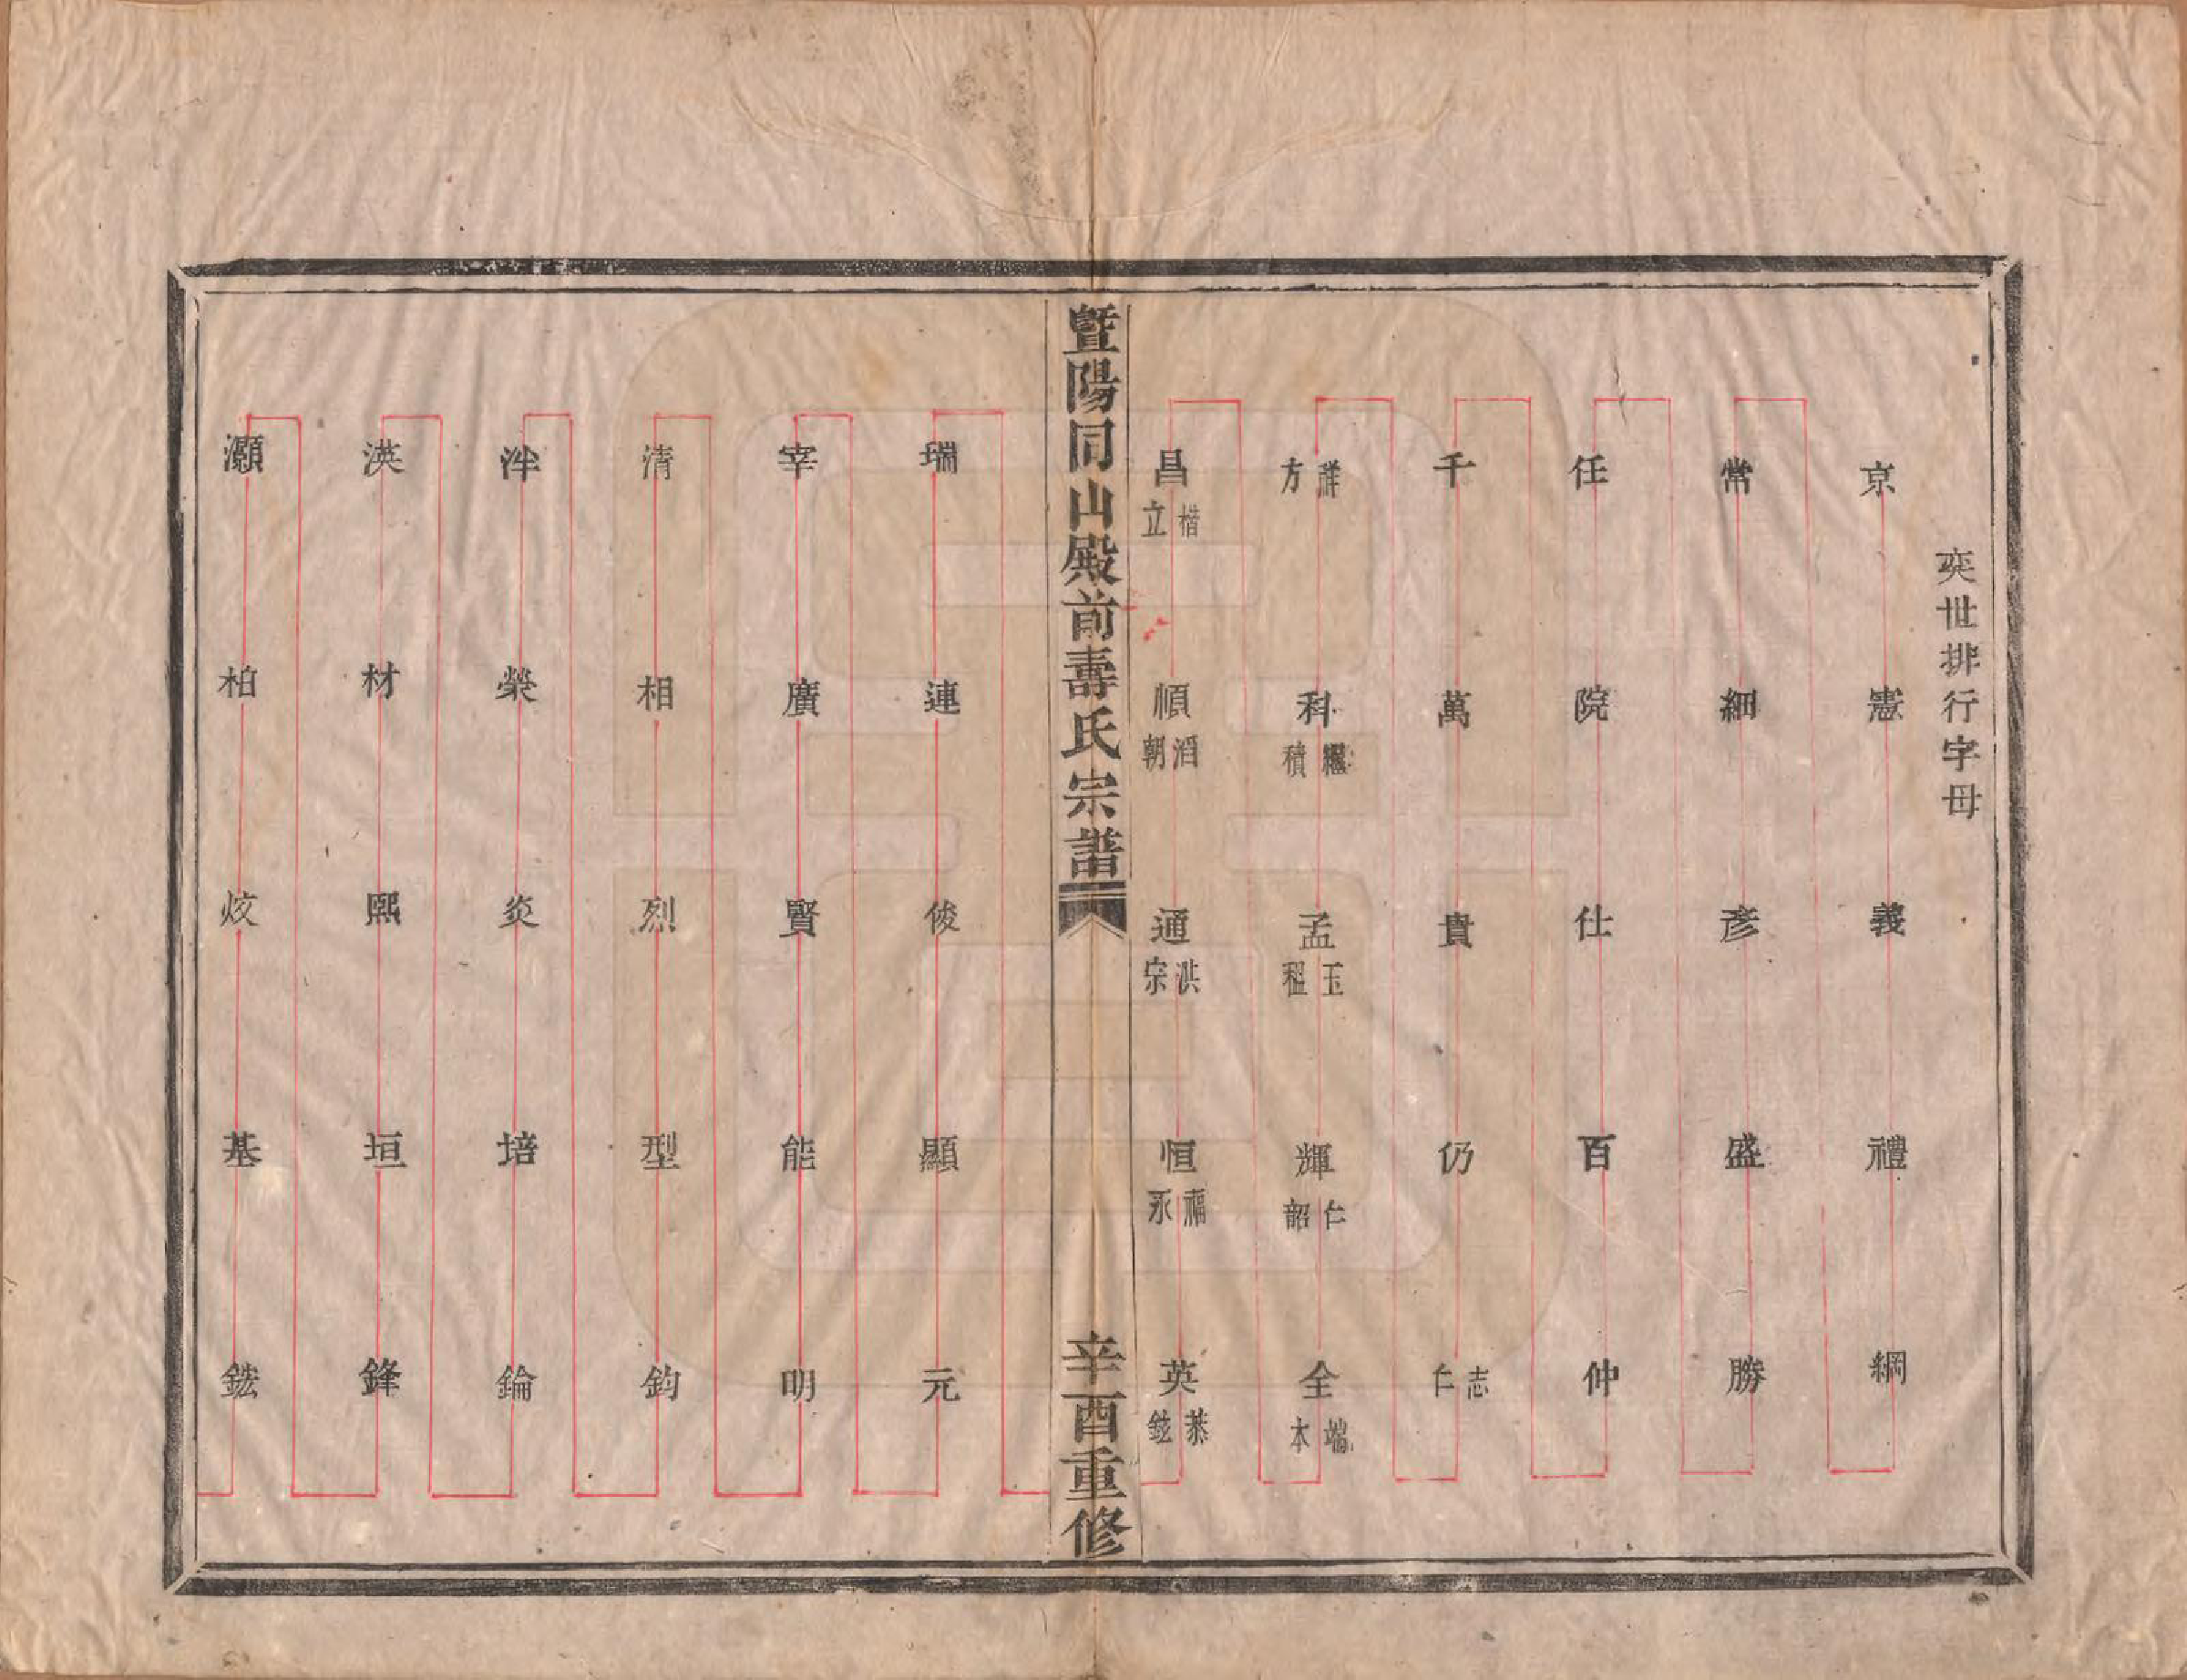 奕世排行字母
京 憲 義 禮 綱
常 細 彥 盛 勝
任 院 仕 百 仲
千 萬 貴 仍 志仁
祥方 科 繼積 孟 玉租 輝 仁韶 全 端本
昌 楷立 順 滔朝 通 洪宗 恒 福永 英 恭鉉
暨陽同山殿前壽氏宗譜
辛酉重修
瑞 連 俊 顯 元
宰 廣 賢 能 明
清 相 烈 型 鈞
泮 榮 炎 培 錀
渶 材 熙 垣 鋒
灝 柏 炆 基 鋐